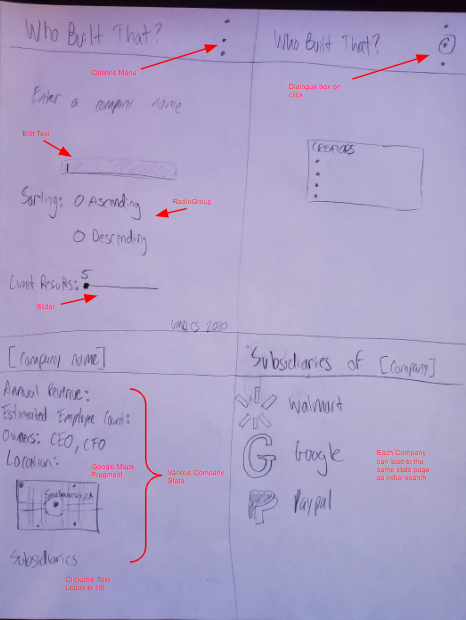 Who Built That?
Options Menu
Enter a company name
Edit Text
Sorting: O Ascending
RadioGroup
O Descending
5
Limit Results:
Slider
UMD CS 2020
Who Built That?
Dialogue box on
click
CREATORS
[Company name]
Annual Revenue:
Estimated Employee Count:
Owners: CEO, CFO
Location:
Google Maps
Fragment
Various Company
Stats
Subsidiaries
Clickable Text
Leeds to list
Subsidiaries of [Company]
Walmart
G Google
P Paypal
Each Company
can lead to the
same stats page
as initial search